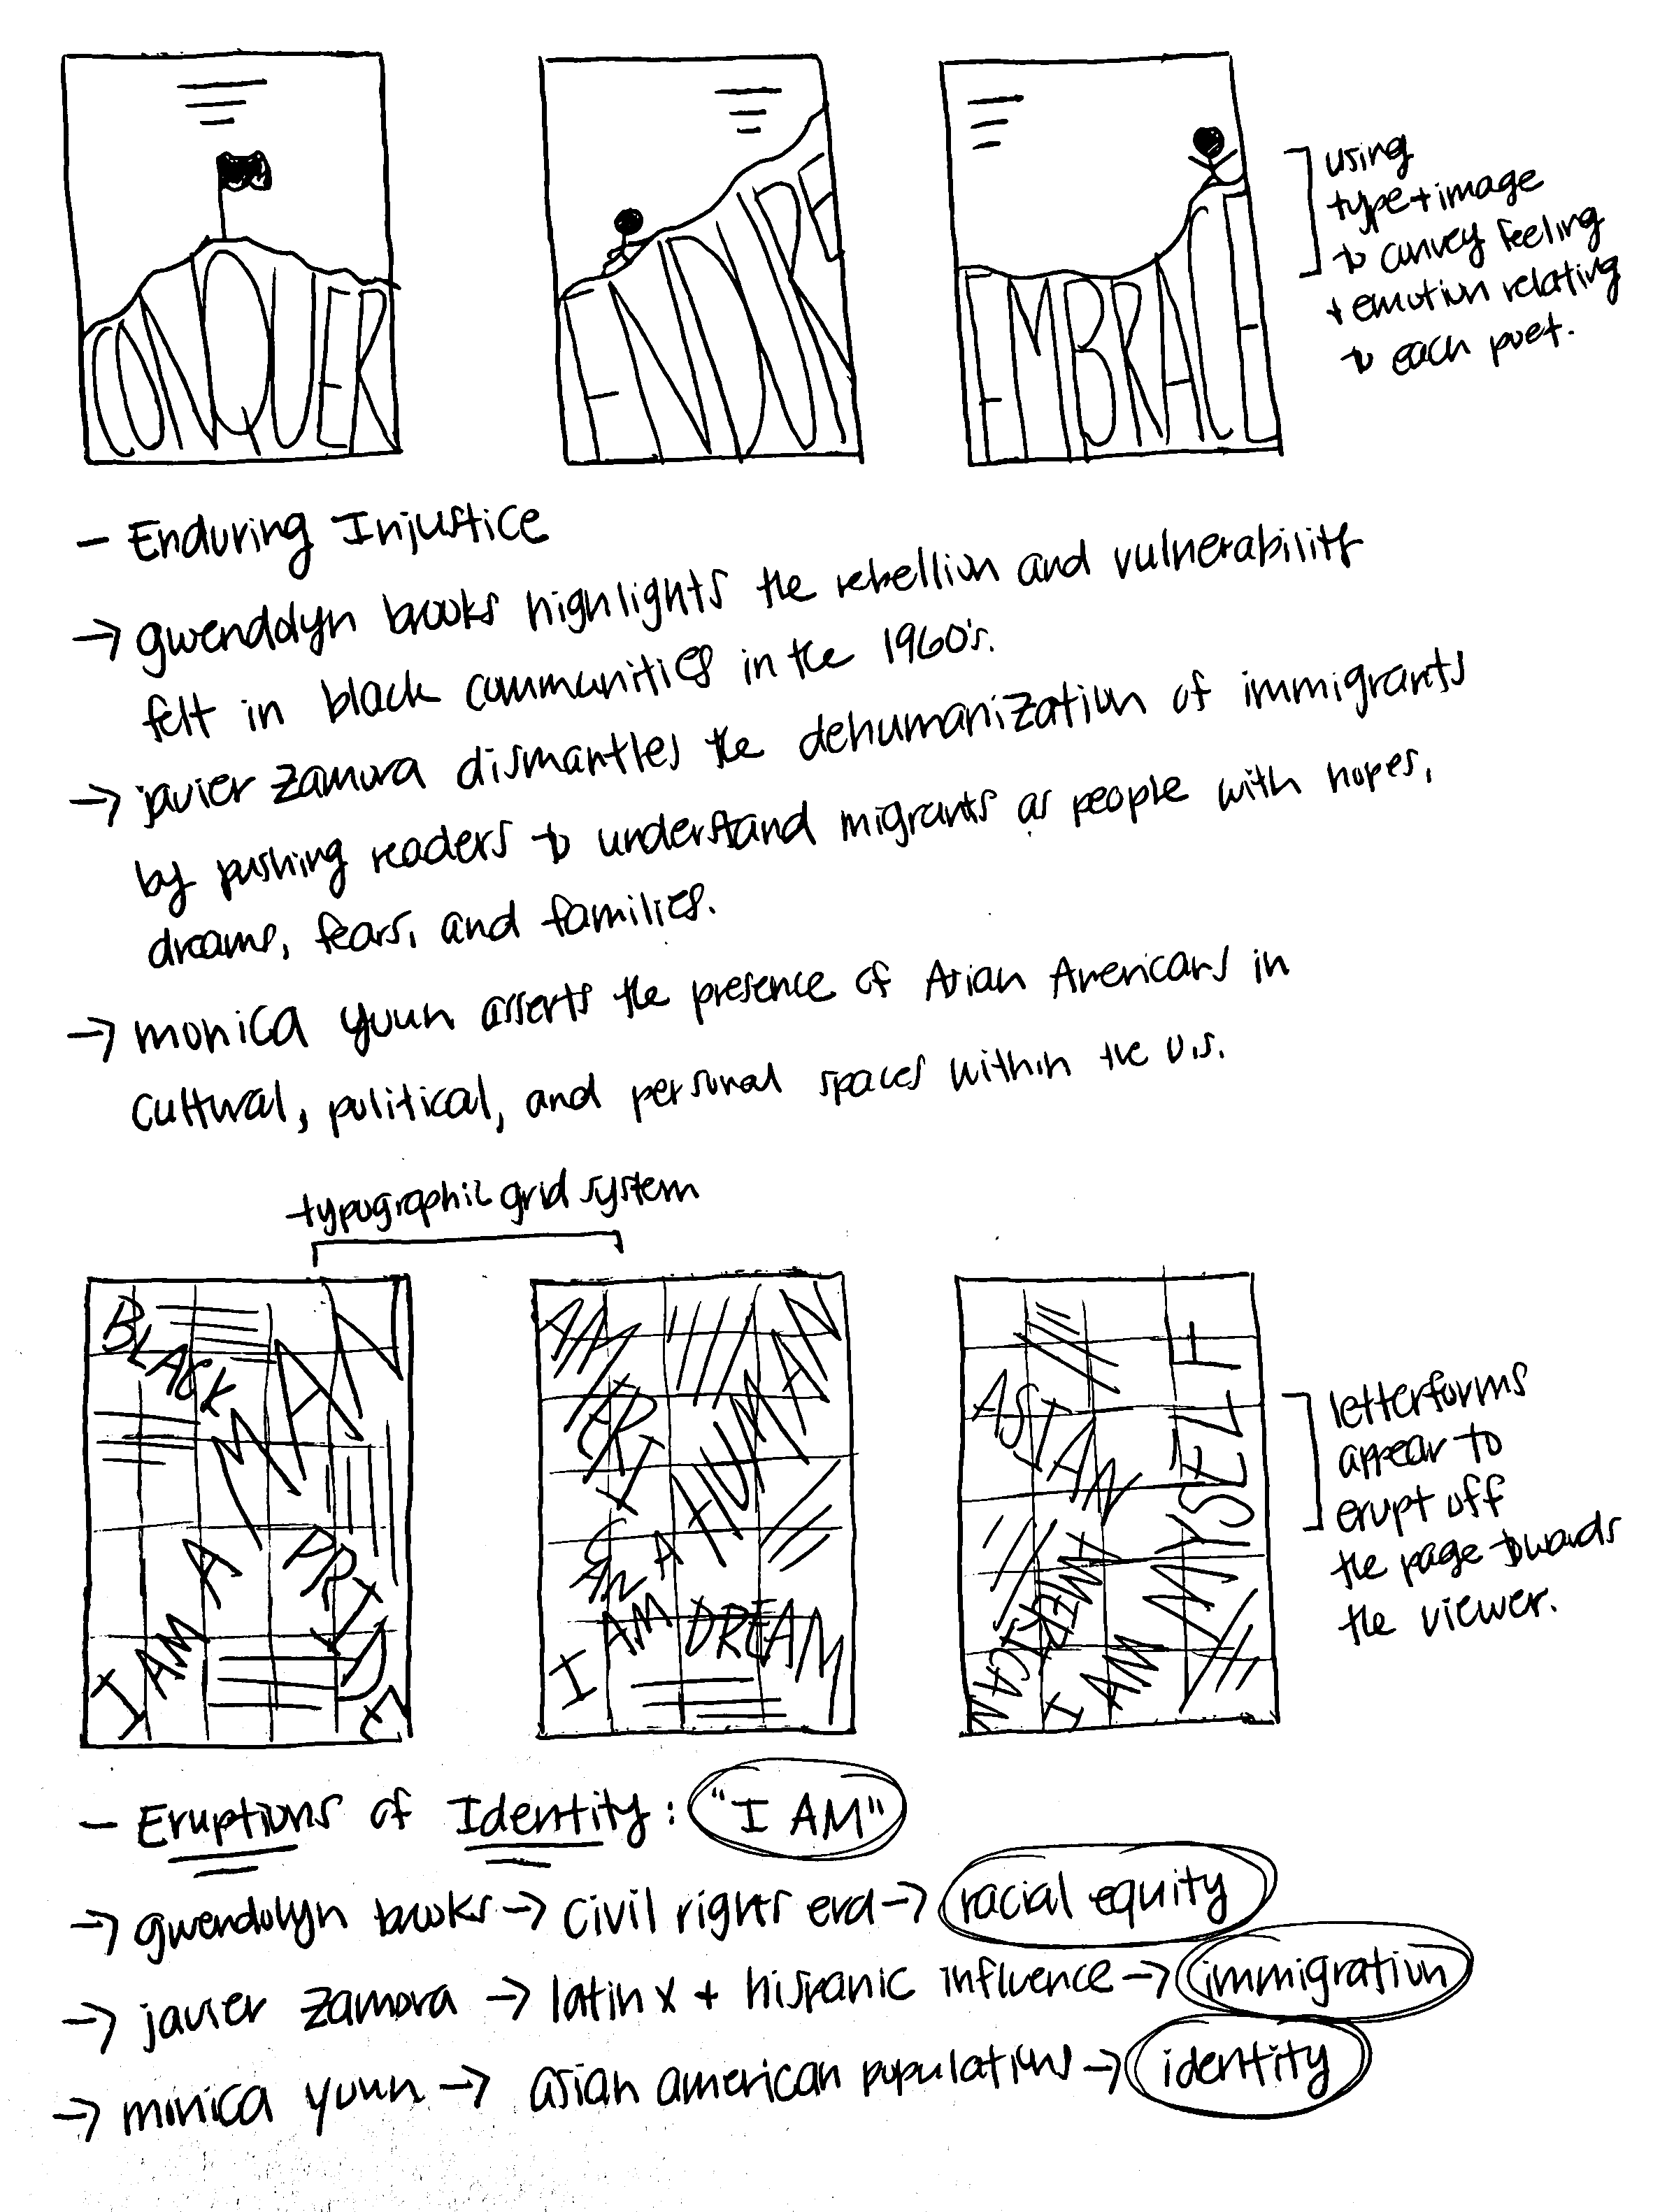 CONQUER
ENDURE
EMBRACE
using
type + image
to convey feeling
+ emotion relating
to each poet.
- Enduring Injustice
→ gwendolyn brooks highlights the rebellion and vulnerability
felt in black communities in the 1960's.
→ javier zamora dismantles the dehumanization of immigrants
by pushing readers to understand migrants as people with hopes,
dreams, fears, and families.
→ monica youn asserts the presence of Asian Americans in
cultural, political, and personal spaces within the U.S.
typographic grid system
BLACK
PRIDE
I AM A MAN
AMERICAN
DREAM
I AM A HUMAN
ASIAN
AMERICAN
I AM MYSELF
letterforms
appear to
erupt off
the page towards
the viewer.
- Eruptions of Identity: "I AM"
→ gwendolyn brooks → civil rights era → racial equity
→ javier zamora → latinx + hispanic influence → immigration
→ minica youn → asian american populations → identity